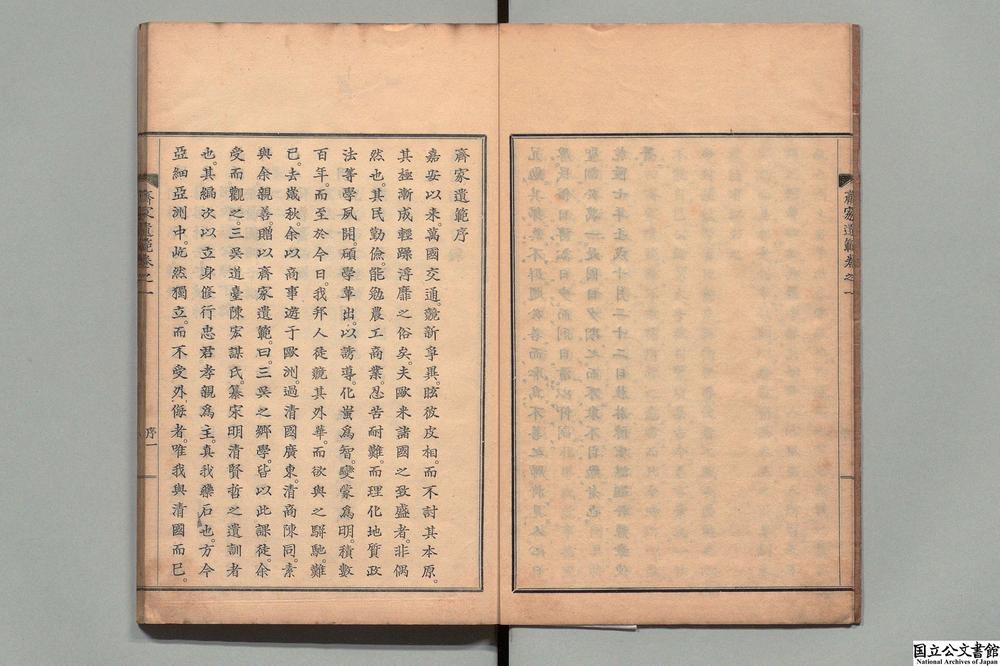 齋家遺範卷之一
齋家遺範序
嘉安以來。萬國交通。競新爭異。眩彼皮相。而不討其本原。
其極漸成輕躁浮靡之俗矣。夫歐米諸國之致盛者。非偶
然也。其民勤儉。能勉農工商業。忍苦耐難。而理化地質政
法等學夙開。碩學輩出。以誘導。化蚩爲智。變蒙爲明。積數
百年。而至於今日。我邦人徒競其外華。而欲與之駢馳。難
已。去歲秋。余以商事遊于歐洲。過清國廣東。清商陳同。素
與余親善。贈以齋家遺範。曰。三吳之鄉學。皆以此課徒。余
受而觀之。三吳道臺陳宏謀氏。纂宋明清賢哲之遺訓者
也。其編次以立身修行忠君孝親爲主。真我藥石也。方今
亞細亞測中。屹然獨立。而不受外侮者。唯我與清國而已。
齋家遺範卷之一
序一
国立公文書館
National Archives of Japan